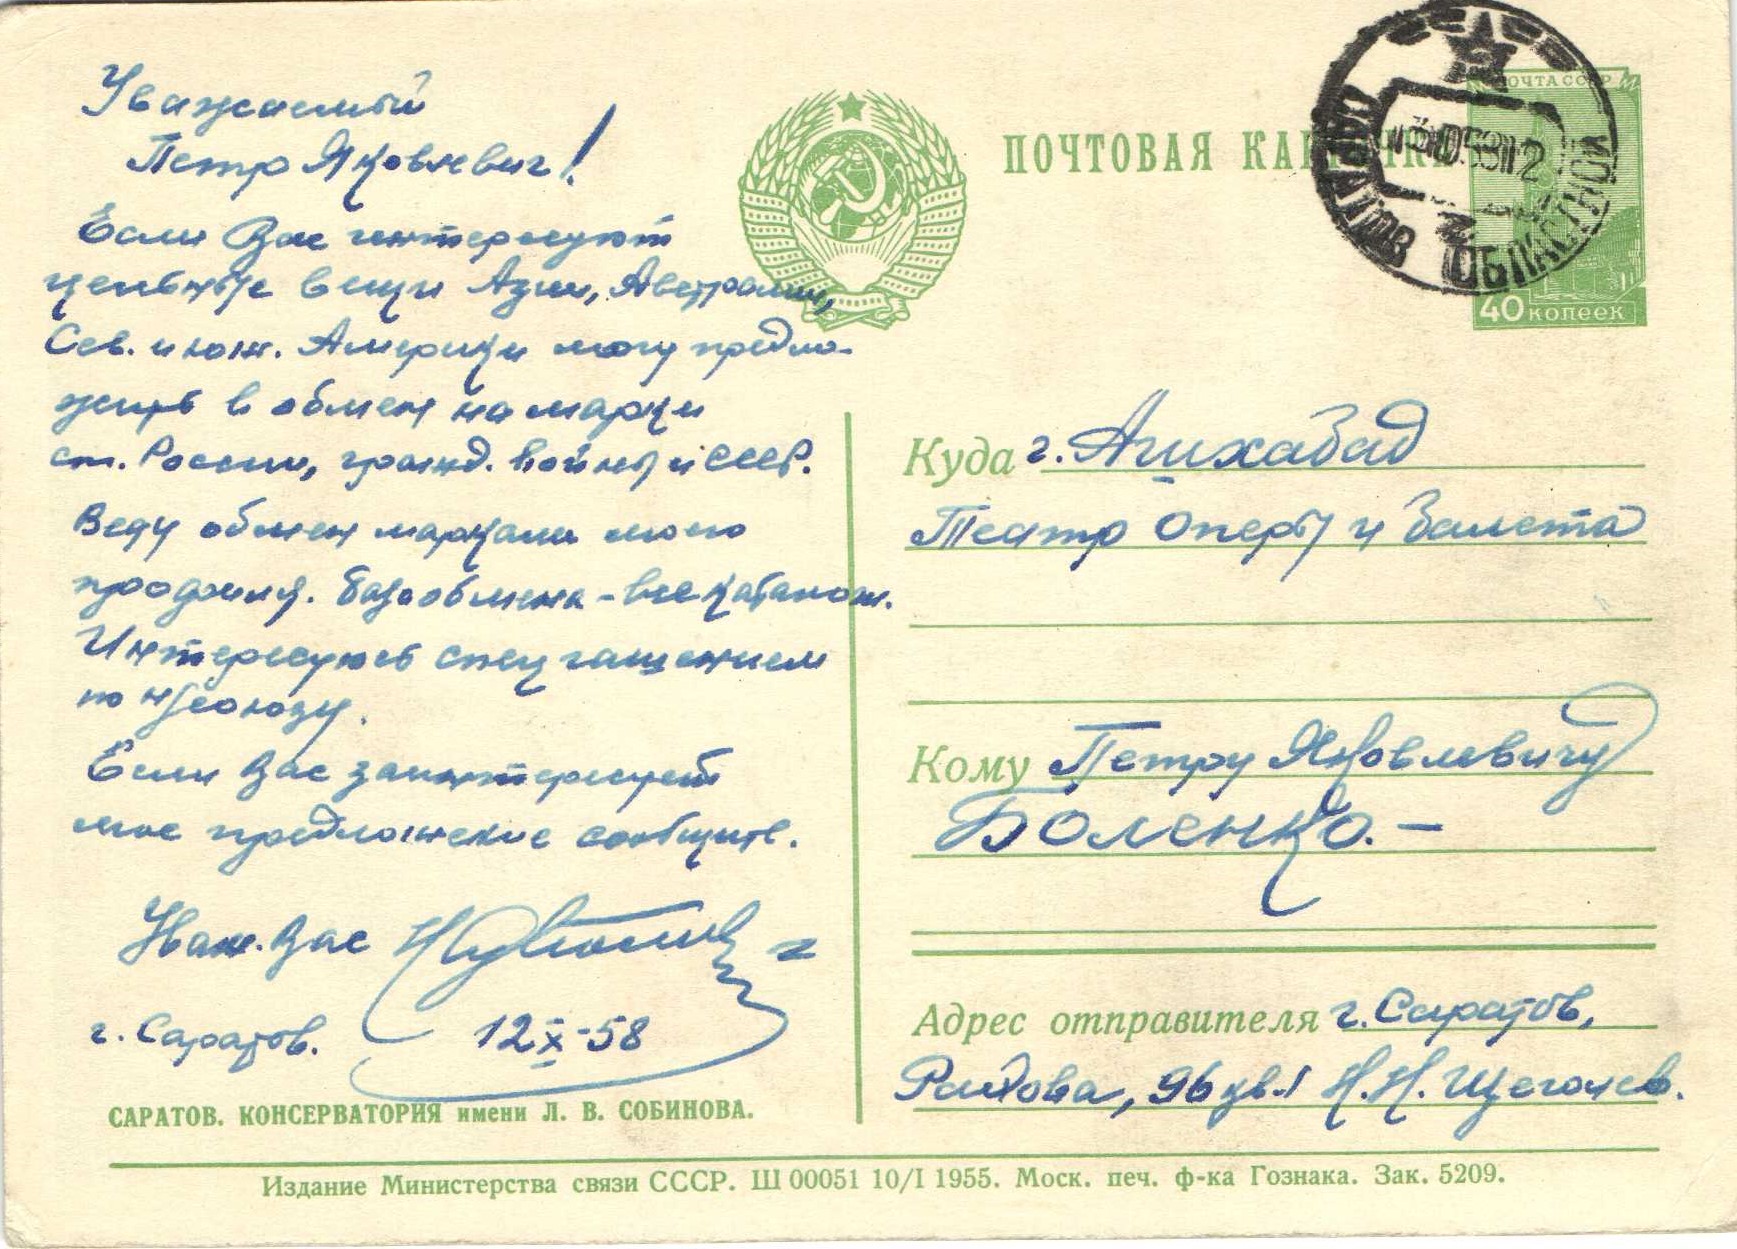 Уважаемый
Петр Яковлевич!
Если Вас интересуют
цельные вещи Азии, Австралии,
Сев. и юж. Америки могу предло-
жить в обмен на марки
ст. России, гражд. войны и СССР.
Веду обмен марками моего
профиля. База обмена - все каталож.
Интересуюсь спецгашением
по н/союзу.
Если Вас заинтересует
мое предложение сообщите.
Уваж. Вас
г. Саратов. 12 X-58
САРАТОВ. КОНСЕРВАТОРИЯ имени Л. В. СОБИНОВА.
ПОЧТОВАЯ КАРТОЧКА
ПОЧТА СССР
40 копеек
САРАТОВ ОБЛАСТНОЙ
Куда г. Ашхабад
Театр Оперы и Балета
Кому Петру Яковлевичу
Боленко. -
Адрес отправителя г. Саратов,
96 кв. 1 Н. Н. Щеголев.
Издание Министерства связи СССР. Ш 00051 10/I 1955. Моск. печ. ф-ка Гознака. Зак. 5209.